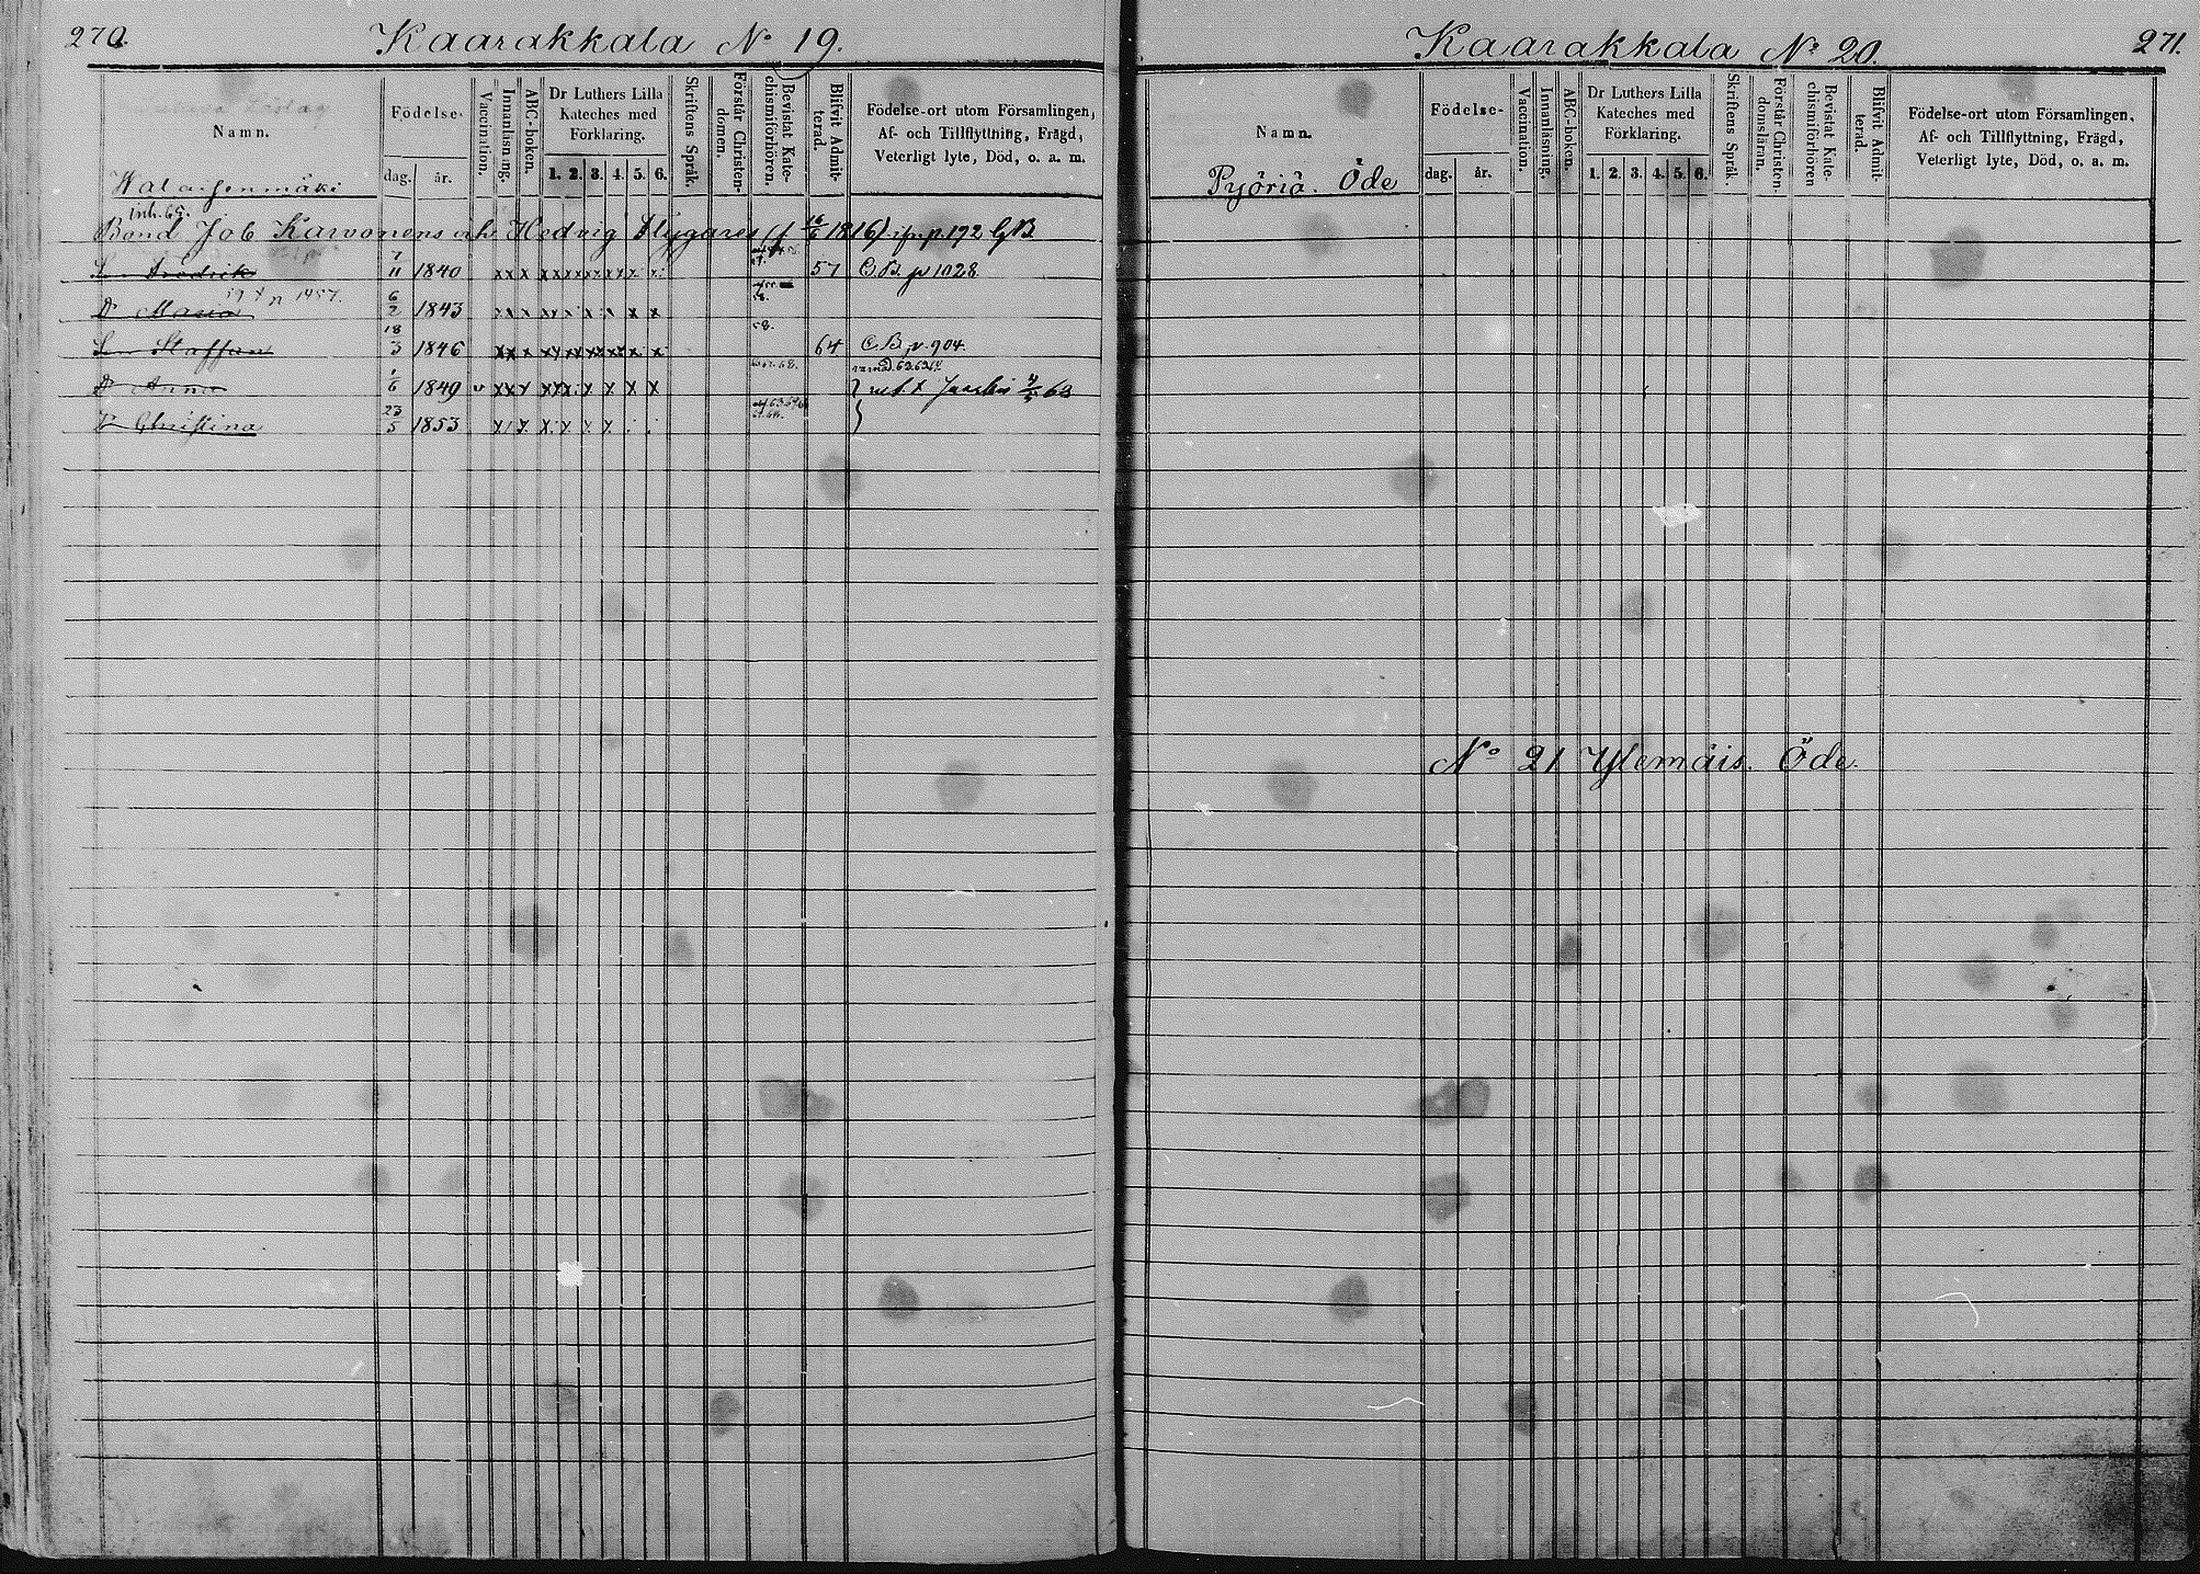 270.
Kaarakkala No 19.
Namn.
Födelse-
dag.
år.
Vaccination.
Innanläsning.
ABC-boken.
Dr Luthers Lilla
Kateches med
Förklaring.
1. 2. 3. 4. 5. 6.
Skriftens Språk.
Förstår Christen-
domen.
Bevistat Kate-
chismiförhören.
Blifvit Admit-
terad.
Födelse-ort utom Församlingen,
Af- och Tillflyttning, Frägd,
Veterligt lyte, Död, o. a. m.
Bond Job Karvonens och Hedvig Flygares (f 16/6 1816) p. 192 GB
Sn Fredrik 7/11 1840 57 C.B. p 1028.
Dr Maria 6/2 1843
Sn Staffan 18/3 1846 64 C.B. p. 904.
Dr Anna 1/6 1849 v 63
Dr Christina 23/5 1853
Kaarakkala No 20.
271.
Namn.
Pyöriä. Öde
Födelse-
dag.
år.
Vaccination.
Innanläsning.
ABC-boken.
Dr Luthers Lilla
Kateches med
Förklaring.
1. 2. 3. 4. 5. 6.
Skriftens Språk.
Förstår Christen-
domsläran.
Bevistat Kate-
chismiförhören
Blifvit Admit-
terad.
Födelse-ort utom Församlingen,
Af- och Tillflyttning, Frägd,
Veterligt lyte, Död, o. a. m.
No 21 Ylemäis. Öde.